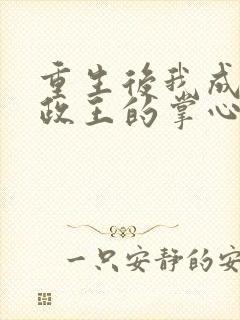 重生後我成
政王的掌心
一只安靜的安